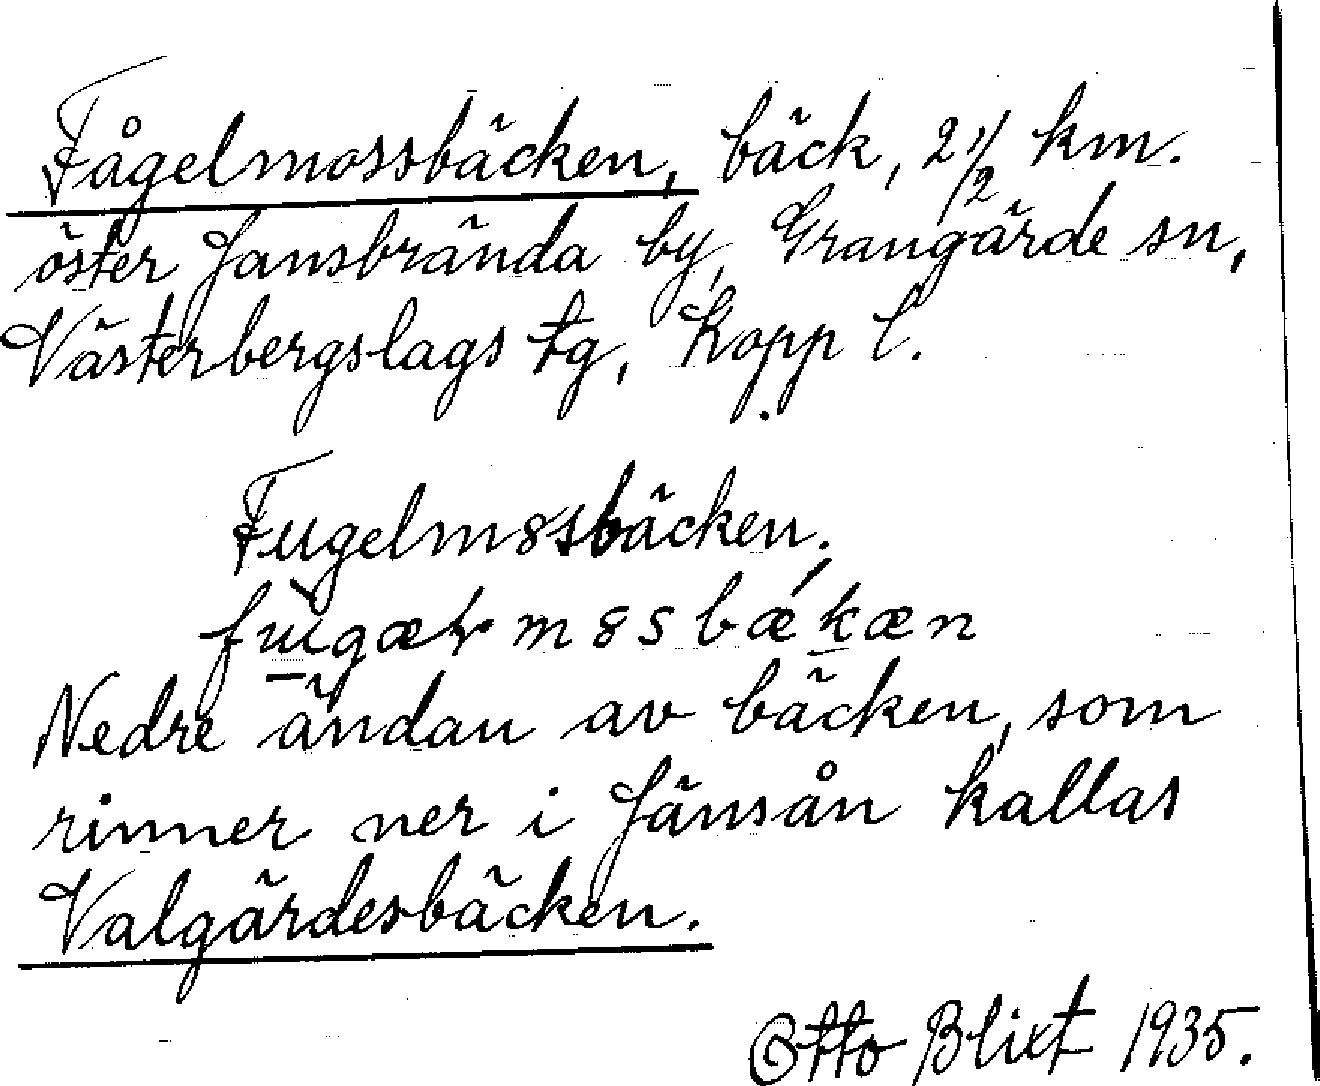 Fågelmossbäcken, bäck, 2 1/2 km.
öster Jansbrända by, Grangärde sn,
Västerbergslags tg, Kopp l.
Fugelm8sbäcken.
Nedre ändan av bäcken, som
rinner ner i Jänsån kallas
Valgärdesbäcken.
Otto Blixt 1935.